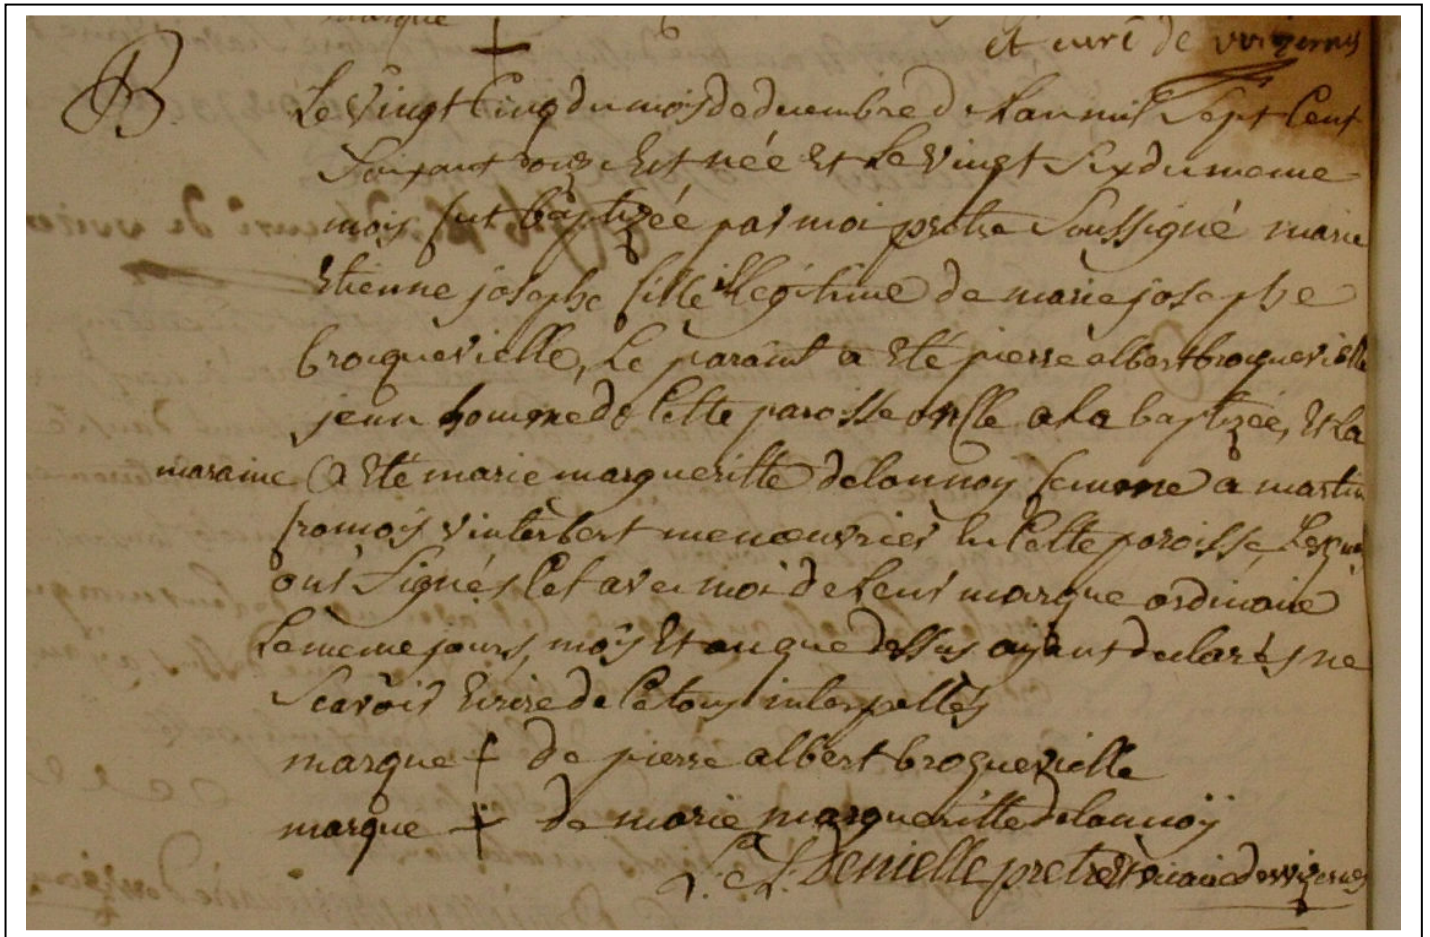 marque
et curé de wizernes
B
Le vingt Cinq du mois de decembre de L'an mil Sept Cent
Soixant Est née Et Le vingt Six du meme
mois fut baptizée par moi pretre Soussigné marie
Etienne josephe fille illegitime de marie josephe
broquevielle, Le parain a Eté pierre albert broquevielle
jeun homme de Cette paroisse a La baptizée, Et La
maraine a Eté marie margueritte delannoy femme a martin
francois vinterbert menouvrier Cette paroisse,
ont Signés Cet avec moi de Leur marque ordinaire
Le meme jours, mois Et an que dessus ayant declarés ne
Scavoir Ecrire de Ce tous interpellés
marque + de pierre albert broquevielle
marque + de marie margueritte delannoy
Denielle pretre Et vicaire de wizernes